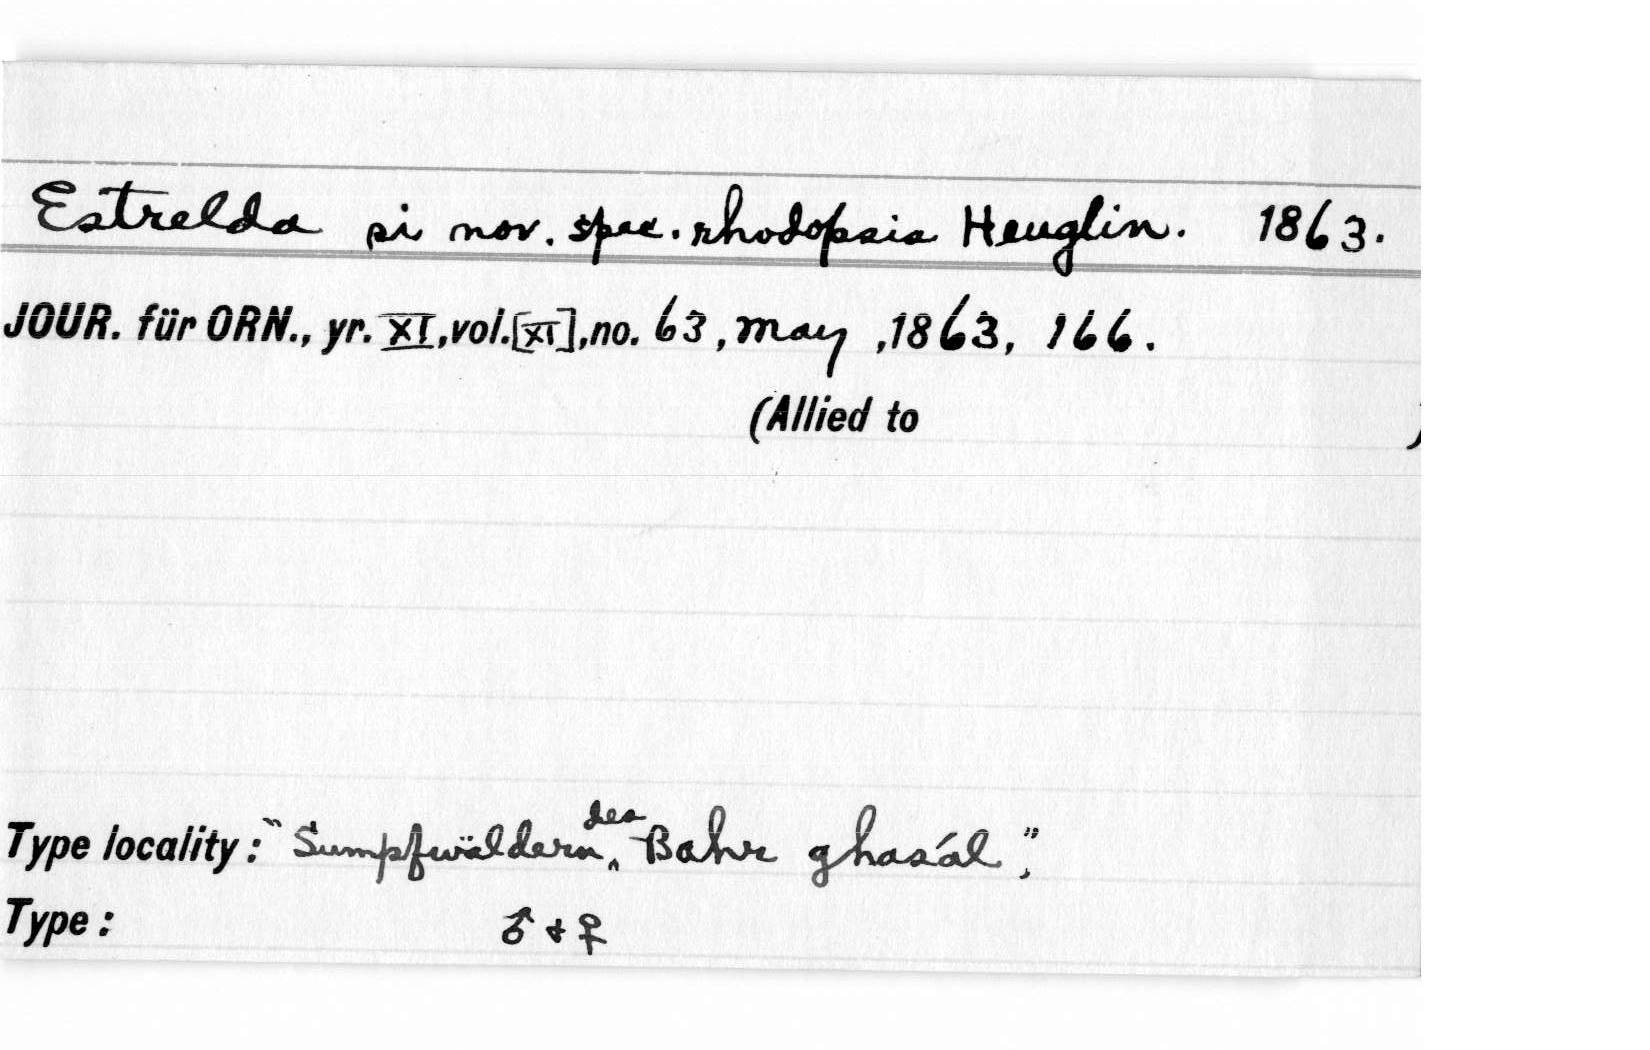 Estrelda si nov. spec. rhodopsis Heuglin. 1863.
JOUR. für ORN., yr. XI, vol. [XI], no. 63, May, 1863, 166.
(Allied to )
Type locality: "Sumpfwäldern des Bahr ghasál",
Type: ♂ + ♀